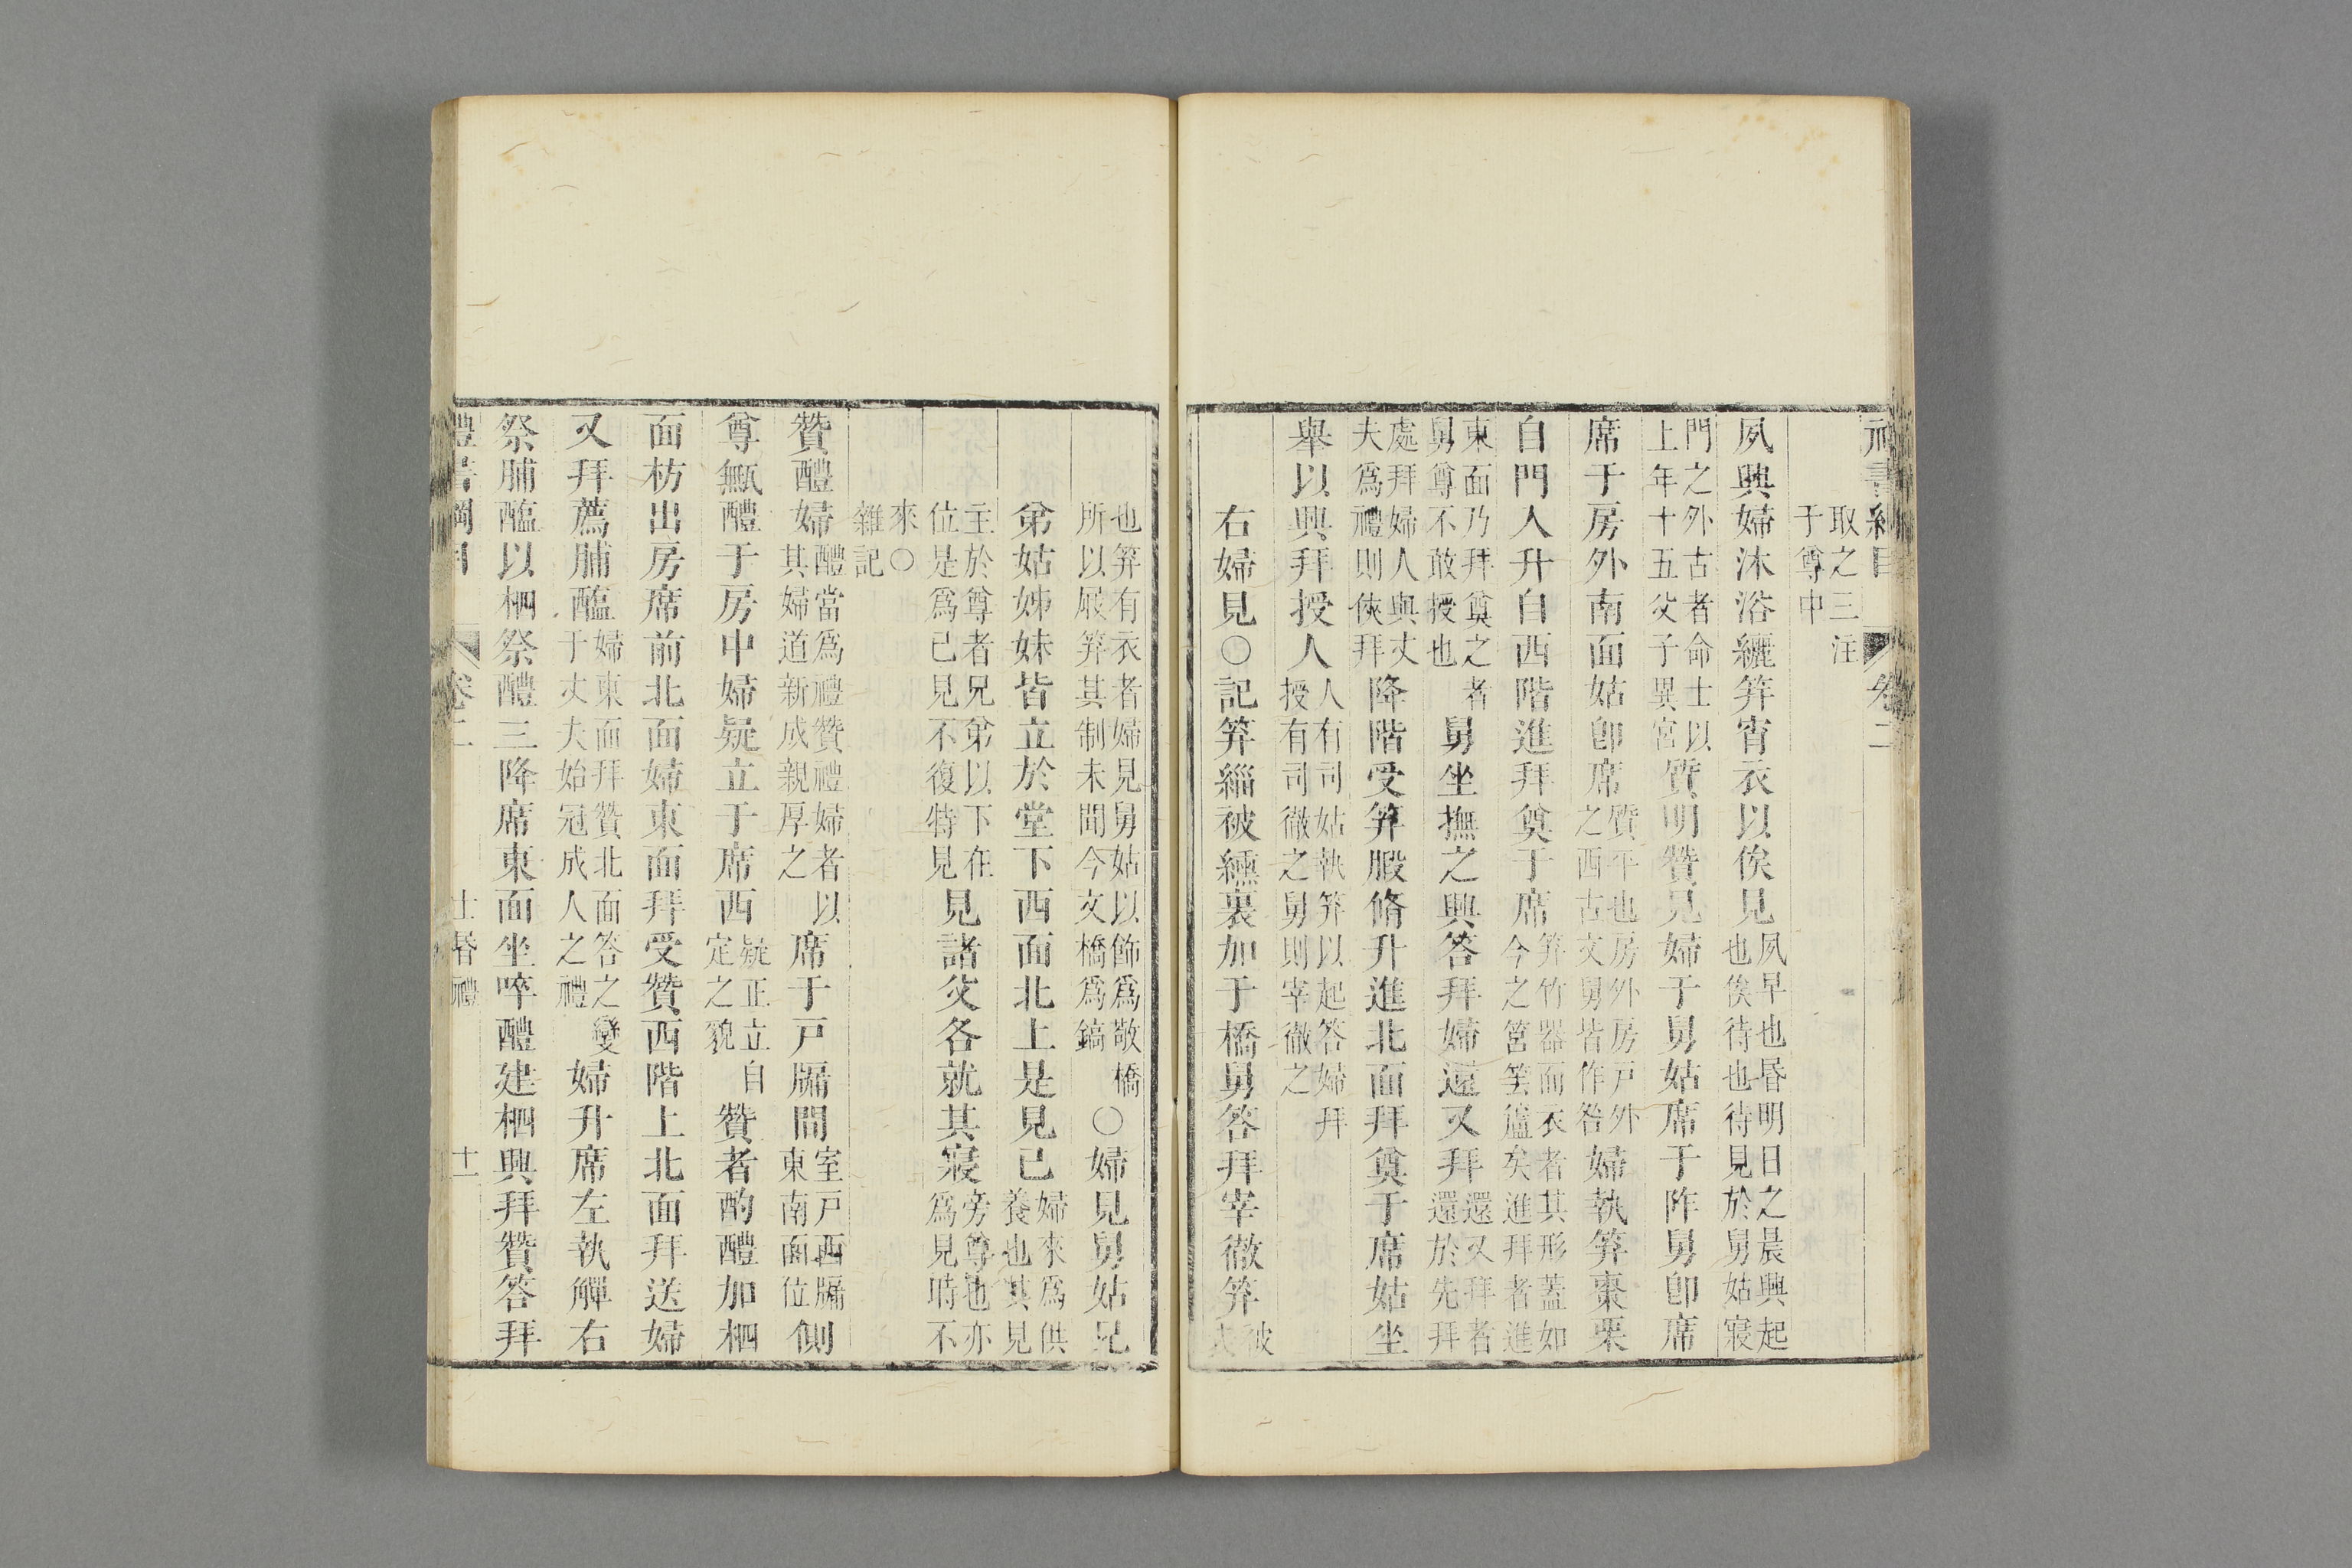 書綱目 卷二
取之三注于尊中
夙興婦沐浴纚笄宵衣以俟見夙早也昏明日之晨興起也俟待也待見於舅姑寢
門之外古者命士以上年十五父子異宮質明贊見婦于舅姑席于阼舅卽席
席于房外南面姑卽席質平也房外房戶外之西古文舅皆作咎婦執笲棗栗
自門入升自西階進拜奠于席笲竹器而衣者其形蓋如今之筥矣進拜者進
東面乃拜奠之者舅尊不敢授也舅坐撫之興答拜婦還又拜還又拜者還於先拜
處拜婦人與丈夫爲禮則俠拜降階受笲腶脩升進北面拜奠于席姑坐
舉以興拜授人人有司姑執笲以起答婦拜授有司徹之舅則宰徹之
右婦見○記笲緇被纁裏加于橋舅答拜宰徹笲被表
也笲有衣者婦見舅姑以飾爲敬橋所以庪笲其制未聞今文橋爲鎬○婦見舅姑兄
弟姑姊妹皆立於堂下西面北上是見已婦來爲供養也其見
主於尊者兄弟以下在位是爲已見不復特見見諸父各就其寢旁尊也亦爲見時不
來○雜記
贊醴婦醴當爲禮贊禮婦者以其婦道新成親厚之席于戶牖間室戶西牖東南面位側
尊甒醴于房中婦疑立于席西疑正立自定之貌贊者酌醴加柶
面枋出房席前北面婦東面拜受贊西階上北面拜送婦
又拜薦脯醢婦東面拜贊北面答之變于丈夫始冠成人之禮婦升席左執觶右
祭脯醢以柶祭醴三降席東面坐啐醴建柶興拜贊答拜
禮書綱目 卷二 士昏禮 十一